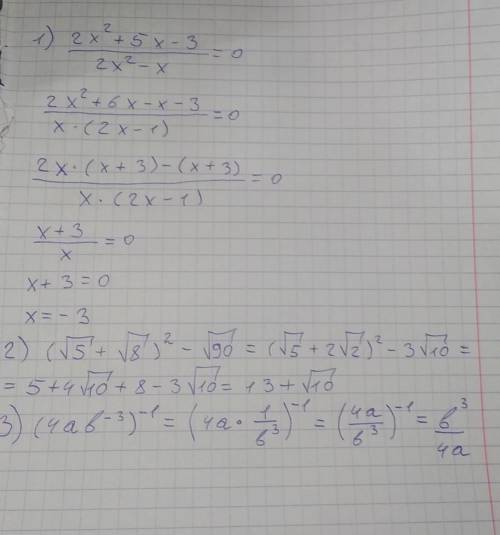 1) (2x² + 5x - 3)/(2x² - x) = 0
(2x² + 6x - x - 3)/(x · (2x - 1)) = 0
(2x · (x + 3) - (x + 3))/(x · (2x - 1)) = 0
(x + 3)/x = 0
x + 3 = 0
x = - 3
2) (√5 + √8)² - √90 = (√5 + 2√2)² - 3√10 =
= 5 + 4√10 + 8 - 3√10 = 13 + √10
3) (4ab⁻³)⁻¹ = (4a · 1/b³)⁻¹ = (4a/b³)⁻¹ = b³/4a